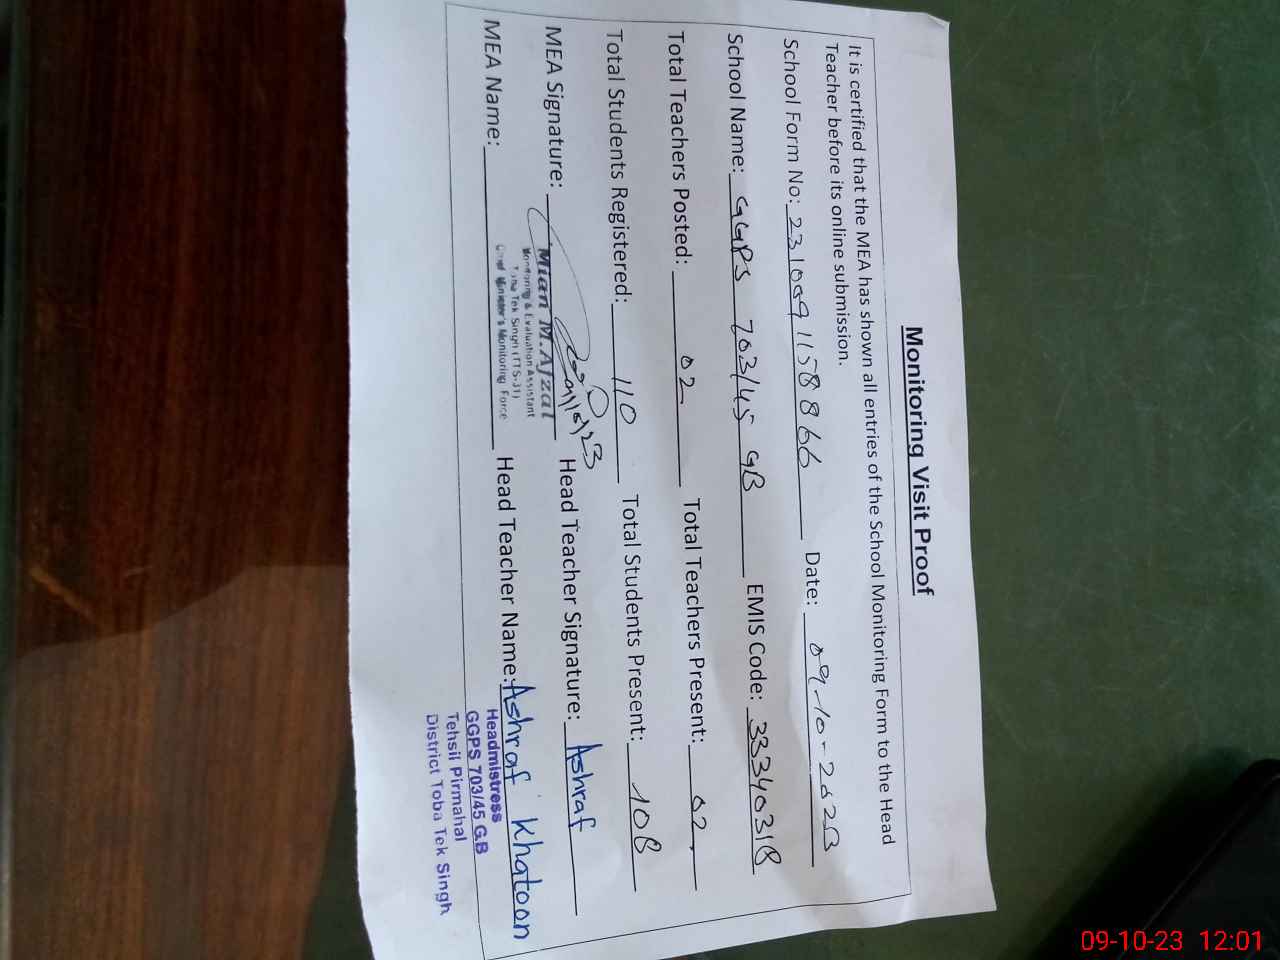 Monitoring Visit Proof
It is certified that the MEA has shown all entries of the School Monitoring Form to the Head
Teacher before its online submission.
School Form No: 23100911588 66 Date: 09-10-2023
School Name: GGPS 703/45 GB EMIS Code: 33340318
Total Teachers Posted: 02 Total Teachers Present: 02
Total Students Registered: 110 Total Students Present: 108
MEA Signature: Head Teacher Signature: Ashraf
Mian M. Afzal
Monitoring & Evaluation Assistant
Toba Tek Singh (TTS-31)
Chief Minister's Monitoring Force
MEA Name: Head Teacher Name: Ashraf Khatoon
Headmistress
GGPS 703/45 G.B
Tehsil Pirmahal
District Toba Tek Singh
09-10-23 12:01